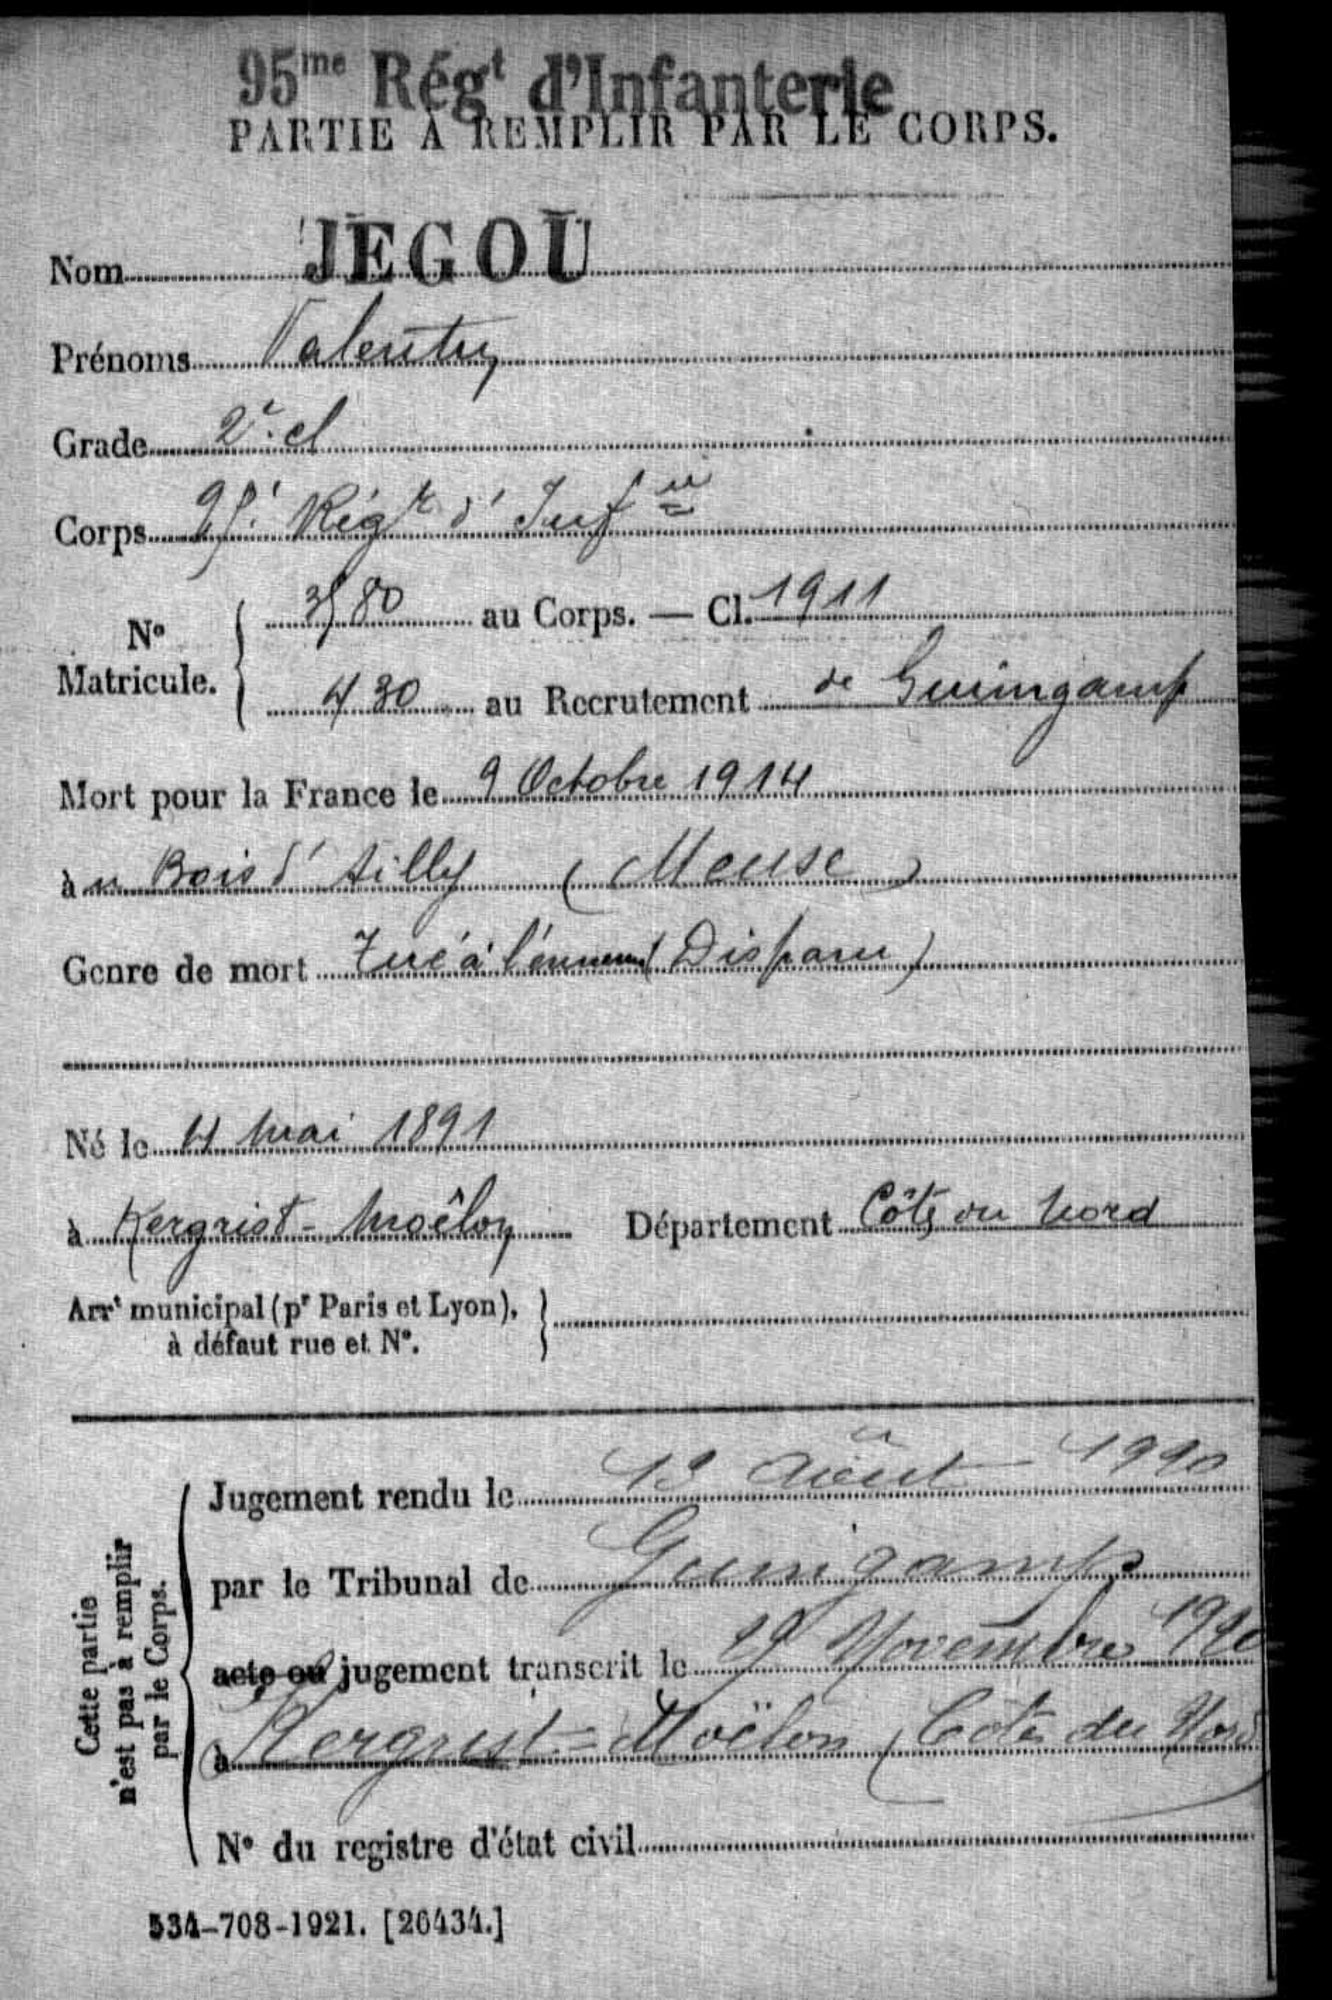 95me Régt d'Infanterie
PARTIE A REMPLIR PAR LE CORPS.
Nom JEGOU
Prénoms Valentin
Grade 2e cl
Corps 95e Régt d'Infie
No Matricule. 3580 au Corps. — Cl. 1911
430 au Recrutement de Guingamp
Mort pour la France le 9 Octobre 1914
à u Bois d'Ailly (Meuse)
Genre de mort Tué à l'ennemi (Disparu)
Né le 4 Mai 1891
à Kergrist-Moëlou Département Côtes du Nord
Arrt municipal (pr Paris et Lyon),
à défaut rue et No.
Cette partie
n'est pas à remplir
par le Corps.
Jugement rendu le Août 1920
par le Tribunal de Guingamp
acte ou jugement transcrit le Novembre 1920
à Kergrist-Moëlou (Côtes du Nord)
No du registre d'état civil
534-708-1921. [26434.]